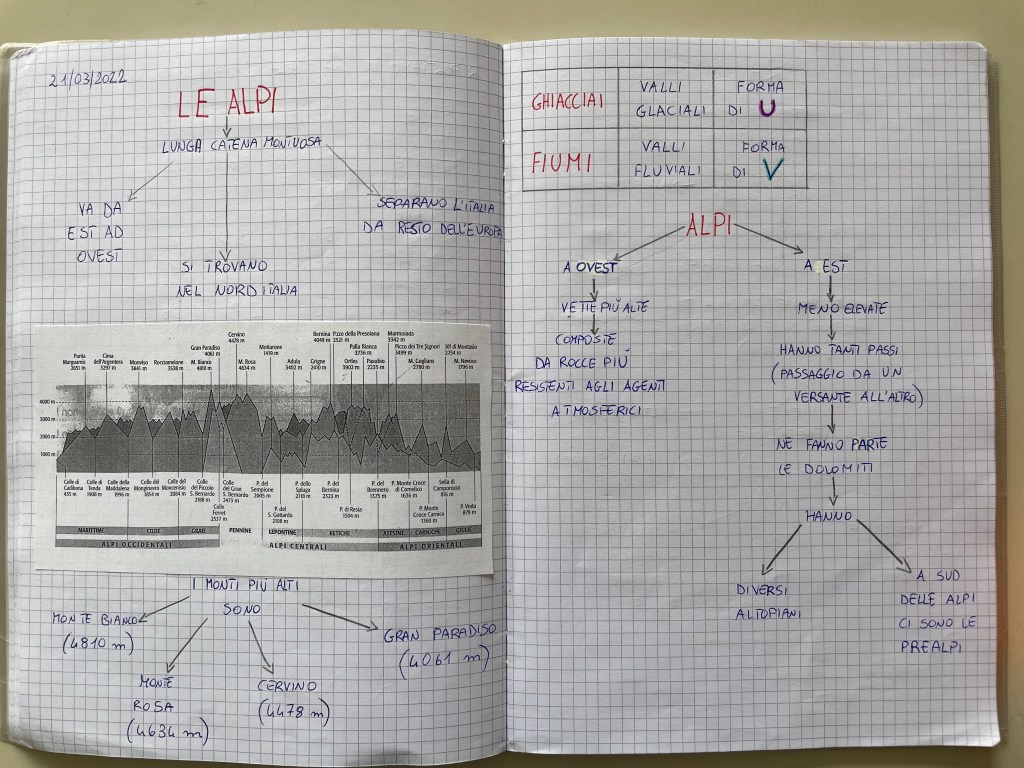 21/03/2022
LE ALPI
LUNGA CATENA MONTUOSA
VA DA
EST AD
OVEST
SI TROVANO
NEL NORD ITALIA
SEPARANO L'ITALIA
DA RESTO DELL'EUROPA
Punta Marguareis 2651 m
Cima dell'Argentera 3297 m
Monviso 3841 m
Rocciamelone 3538 m
Gran Paradiso 4061 m
M. Bianco 4810 m
Cervino 4478 m
M. Rosa 4634 m
Mottarone 1419 m
Adula 3402 m
Grigne 2410 m
Bernina 4049 m
P.zzo della Presolana 2521 m
Ortles 3902 m
Palla Bianca 3736 m
Pasubio 2235 m
Marmolada 3342 m
Picco dei Tre Signori 3499 m
M. Coglians 2780 m
Jôf di Montasio 2754 m
M. Nevoso 1796 m
4000 m
3000 m
2000 m
1000 m
Colle di Cadibona 435 m
Colle di Tenda 1908 m
Colle della Maddalena 1996 m
Colle del Monginevro 1854 m
Colle del Moncenisio 2084 m
Colle del Piccolo S. Bernardo 2188 m
Colle Ferret 2537 m
Colle del Gran S. Bernardo 2473 m
P. del Sempione 2005 m
P. del S. Gottardo 2108 m
P. dello Spluga 2118 m
P. del Bernina 2323 m
P. di Resia 1504 m
P. del Brennero 1375 m
P. Monte Croce di Comelico 1636 m
P. Monte Croce Carnico 1360 m
Sella di Camporosso 816 m
P. Vrata 879 m
MARITTIME COZIE GRAIE PENNINE LEPONTINE RETICHE ATESINE CARNICHE GIULIE
ALPI OCCIDENTALI ALPI CENTRALI ALPI ORIENTALI
I MONTI PIÙ ALTI
SONO
MONTE BIANCO
(4810 m)
MONTE
ROSA
(4634 m)
CERVINO
(4478 m)
GRAN PARADISO
(4061 m)
GHIACCIAI VALLI GLACIALI FORMA DI U
FIUMI VALLI FLUVIALI FORMA DI V
ALPI
A OVEST
VETTE PIÙ ALTE
COMPOSTE
DA ROCCE PIÙ
RESISTENTI AGLI AGENTI
ATMOSFERICI
A EST
MENO ELEVATE
HANNO TANTI PASSI
(PASSAGGIO DA UN
VERSANTE ALL'ALTRO)
NE FANNO PARTE
LE DOLOMITI
HANNO
DIVERSI
ALTOPIANI
A SUD
DELLE ALPI
CI SONO LE
PREALPI